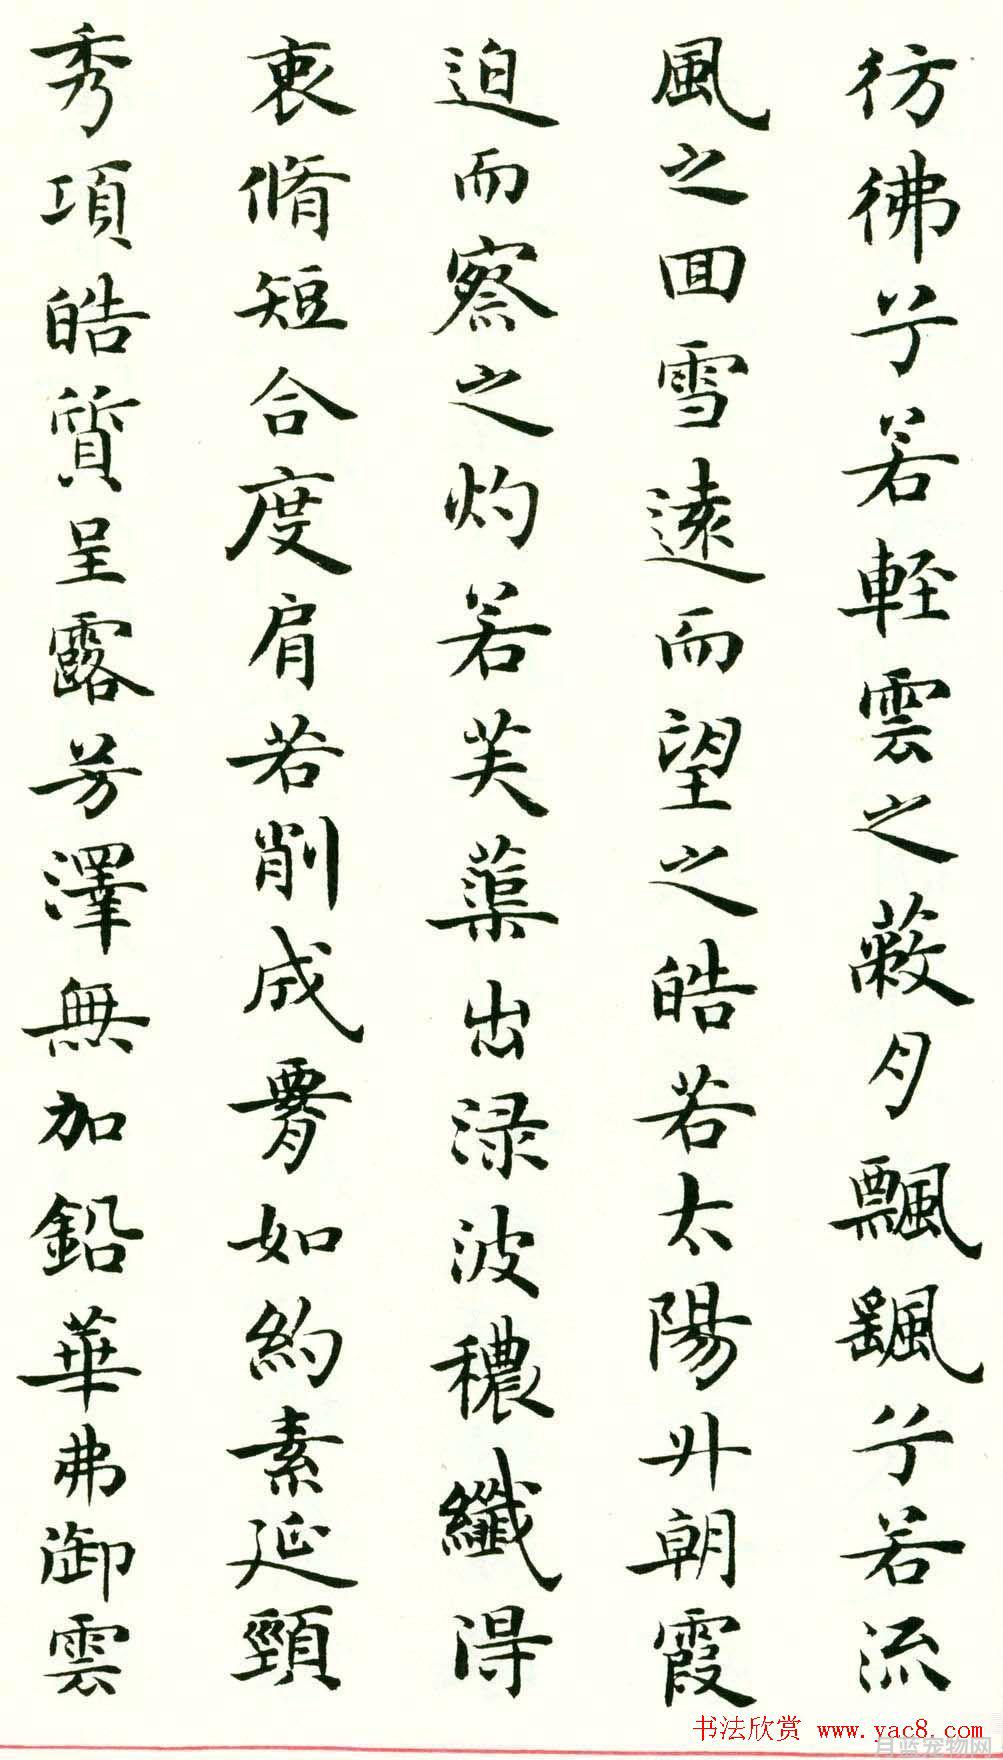 彷彿兮若輕雲之蔽月飄颻兮若流
風之囬雪遠而望之皓若太陽升朝霞
迫而察之灼若芙蕖出渌波穠纖得
衷脩短合度肩若削成𦝫如約素延頸
秀項皓質呈露芳澤無加鉛華弗御雲
书法欣赏 www.yac8.com